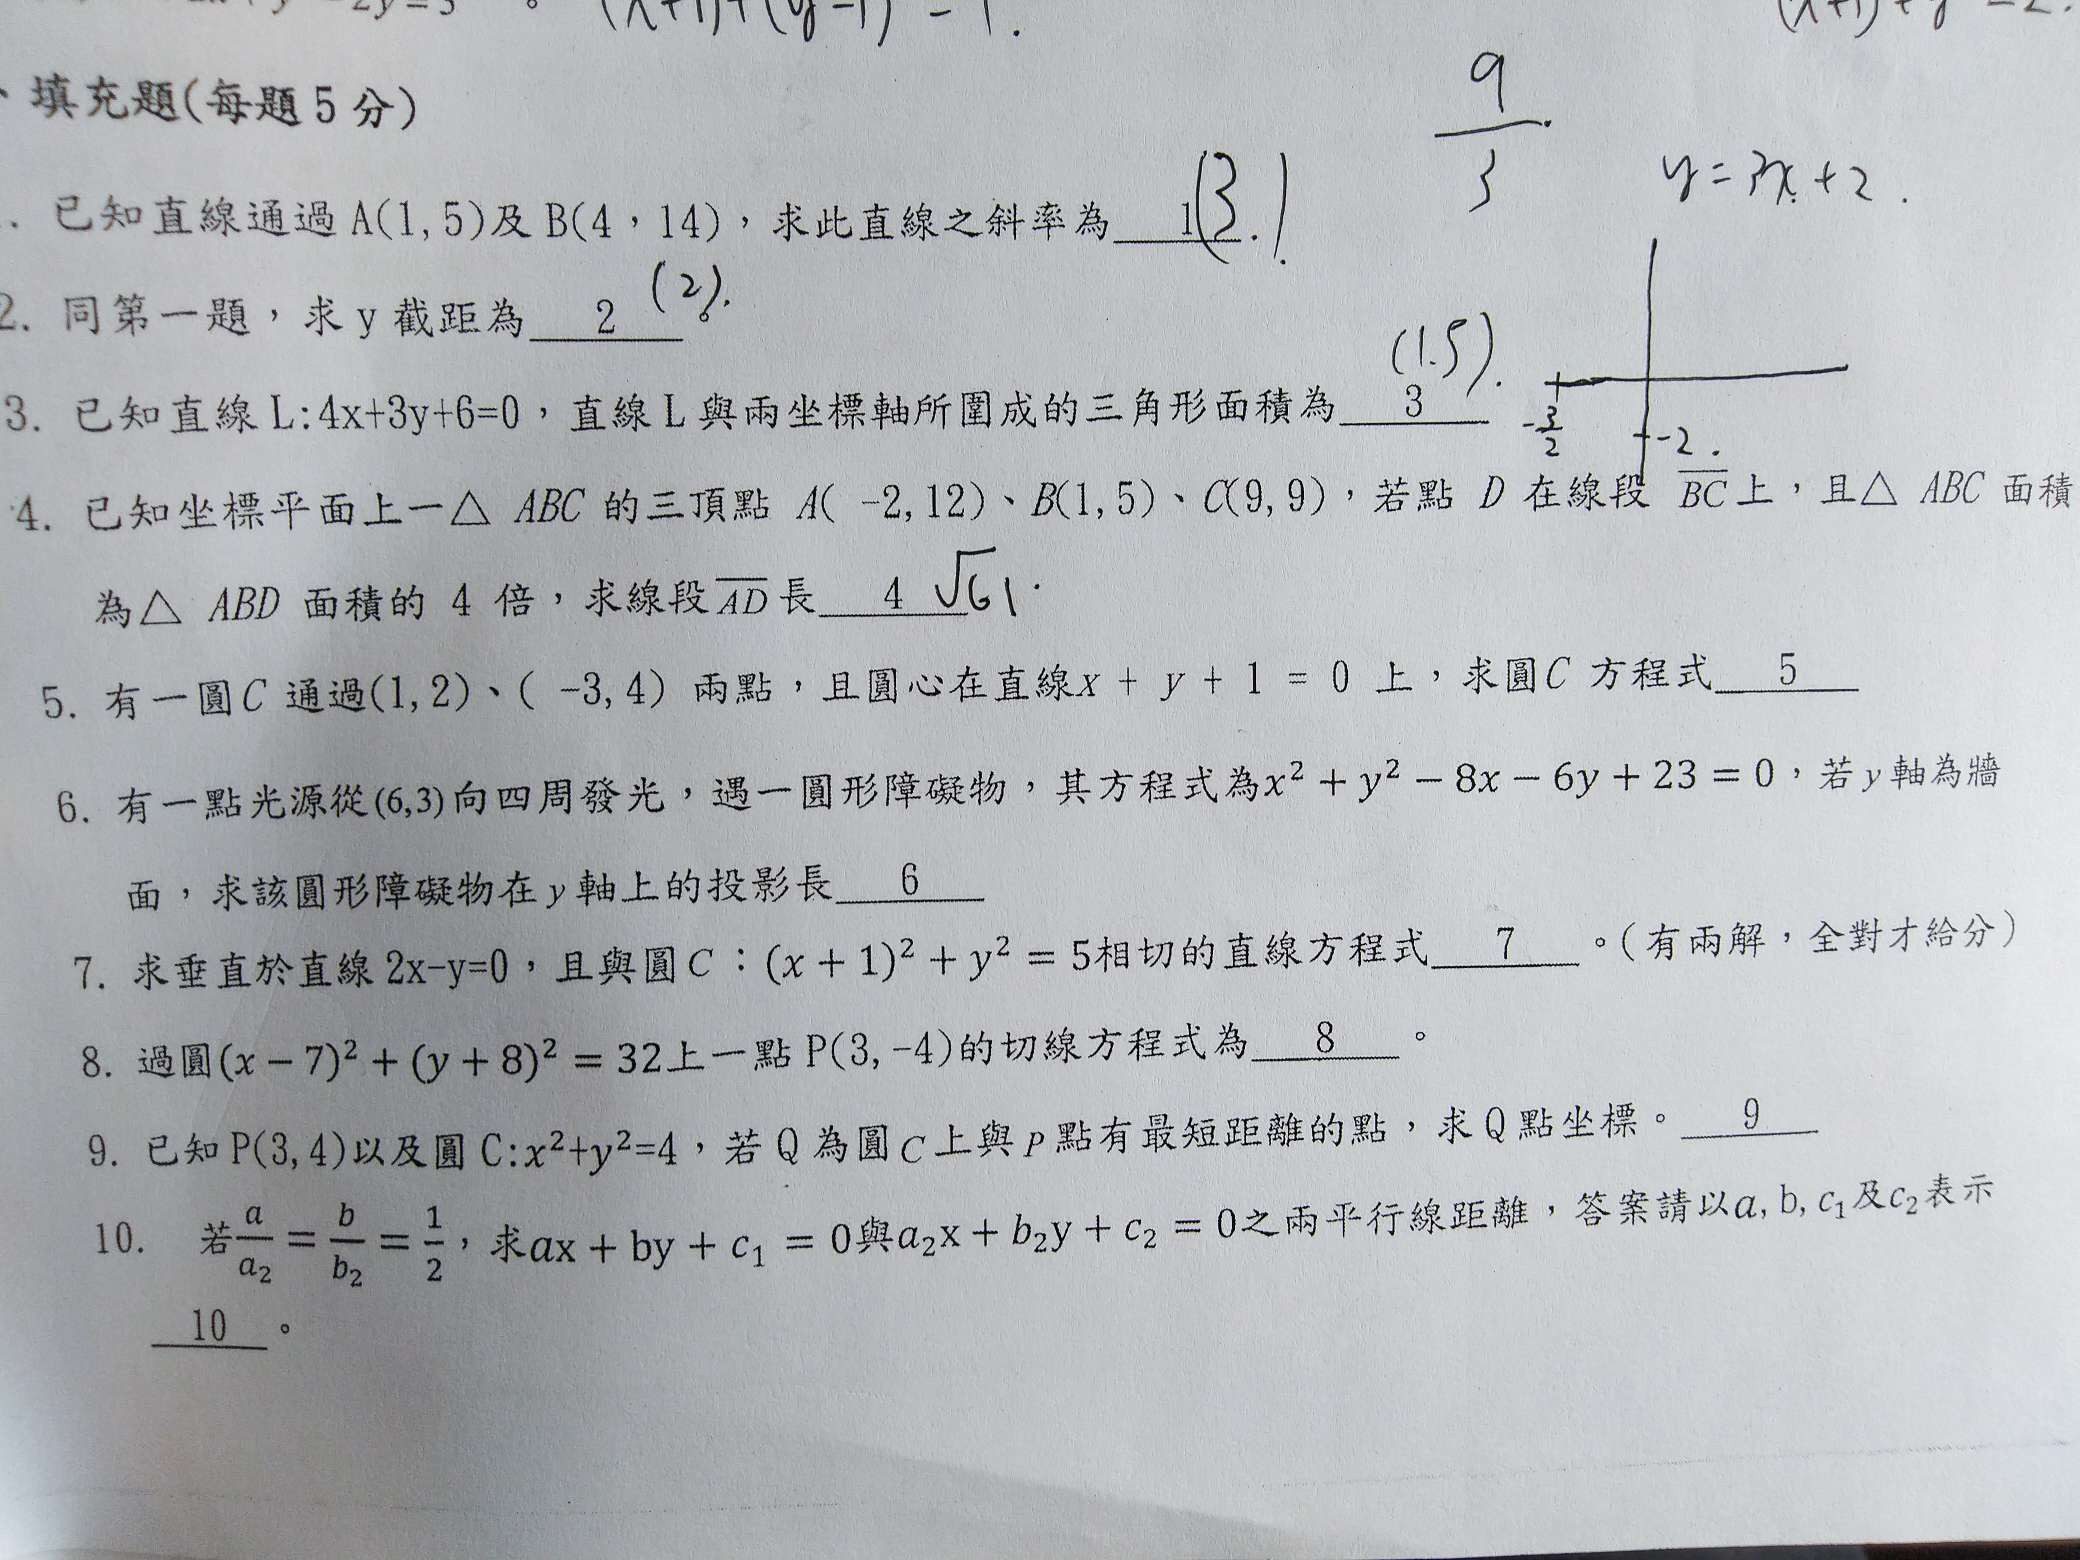 (x+1)+(y-1) = 1.
填充題(每題5分)
9
3
y=3x+2.
. 已知直線通過A(1,5)及B(4,14),求此直線之斜率為 1 (3.)
2. 同第一題,求y截距為 2 (2).
3. 已知直線L:4x+3y+6=0,直線L與兩坐標軸所圍成的三角形面積為 3 (1.5).
-3/2
-2.
4. 已知坐標平面上一△ ABC 的三頂點 A( -2,12)、B(1,5)、C(9,9),若點 D 在線段 BC上,且△ ABC 面積
為△ ABD 面積的 4 倍,求線段AD長 4 √61.
5. 有一圓C 通過(1,2)、( -3,4) 兩點,且圓心在直線x + y + 1 = 0 上,求圓C 方程式 5
6. 有一點光源從(6,3)向四周發光,遇一圓形障礙物,其方程式為x² + y² − 8x − 6y + 23 = 0,若y軸為牆
面,求該圓形障礙物在y軸上的投影長 6
7. 求垂直於直線2x-y=0,且與圓C:(x + 1)² + y² = 5相切的直線方程式 7 。(有兩解,全對才給分)
8. 過圓(x − 7)² + (y + 8)² = 32上一點P(3,-4)的切線方程式為 8 。
9. 已知P(3,4)以及圓C:x²+y²=4,若Q為圓C上與P點有最短距離的點,求Q點坐標。 9
10. 若a/a₂ = b/b₂ = 1/2,求ax + by + c₁ = 0與a₂x + b₂y + c₂ = 0之兩平行線距離,答案請以a, b, c₁及c₂表示
10 。